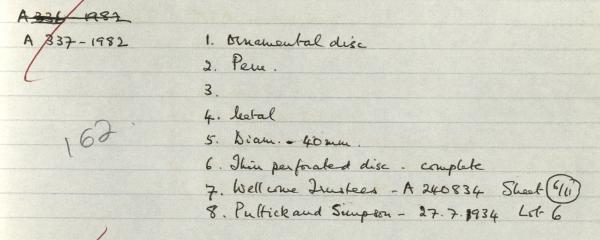 A 336 - 1982
A 337 - 1982
1. Ornamental disc
2. Peru.
3.
4. Metal
5. Diam. - 40mm.
6. Thin perforated disc - complete
7. Wellcome Trustees - A 240834 Sheet 6/11
8. Puttick and Simpson - 27.7.1934 Lot 6
162